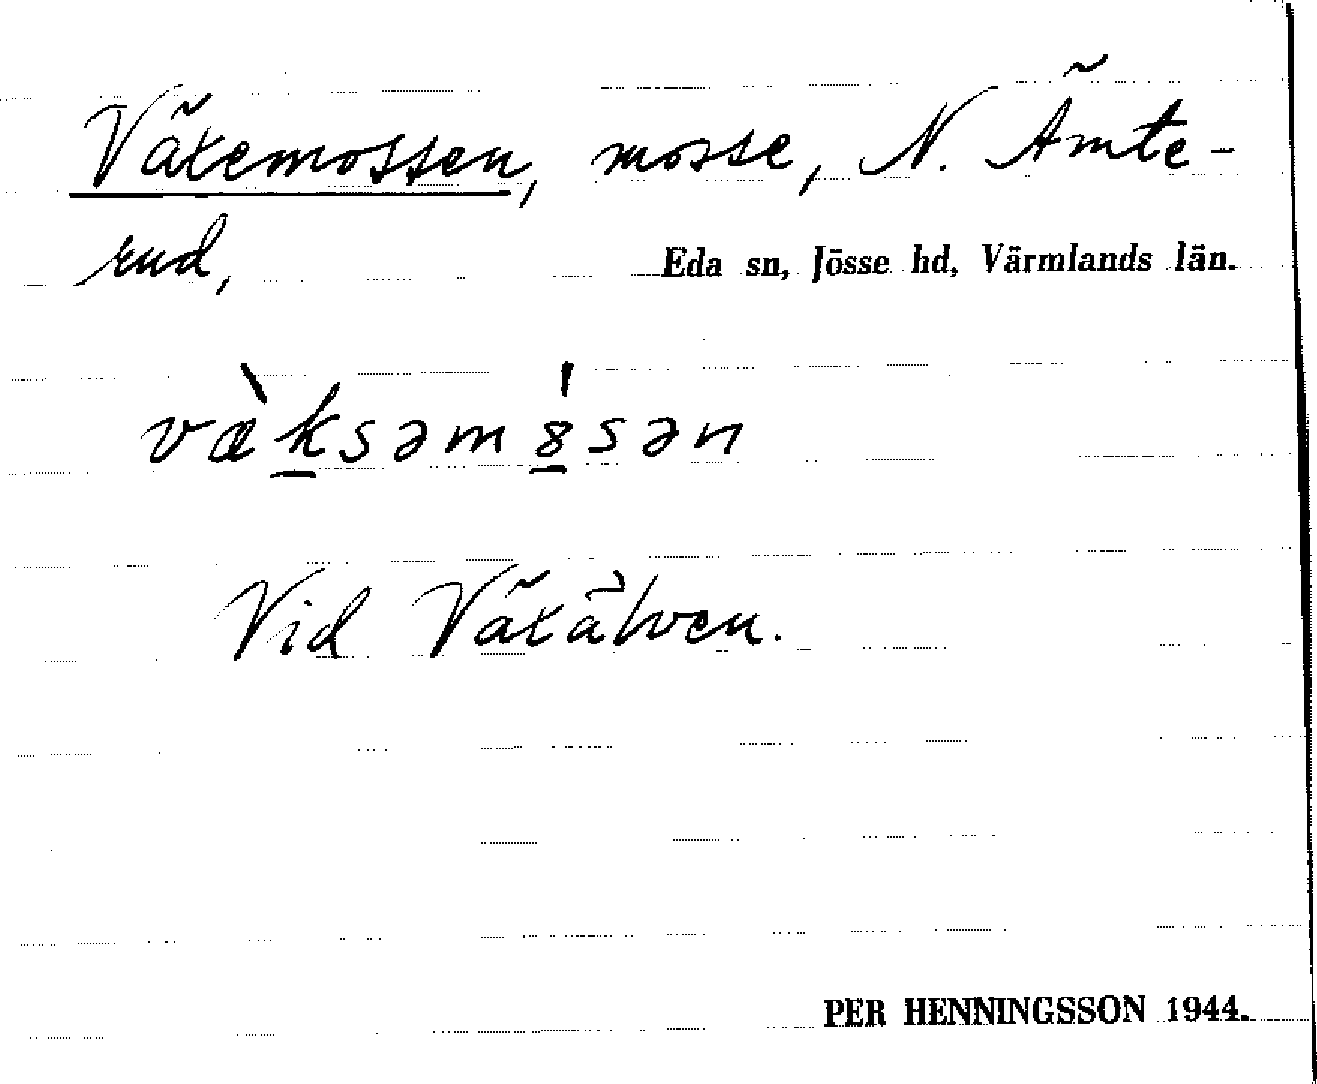 Växemossen, mosse, N. Ämte-
rud,
Eda sn, Jösse hd, Värmlands län.
væ̀ksəm8̍sən
Vid Växälven.
PER HENNINGSSON 1944.